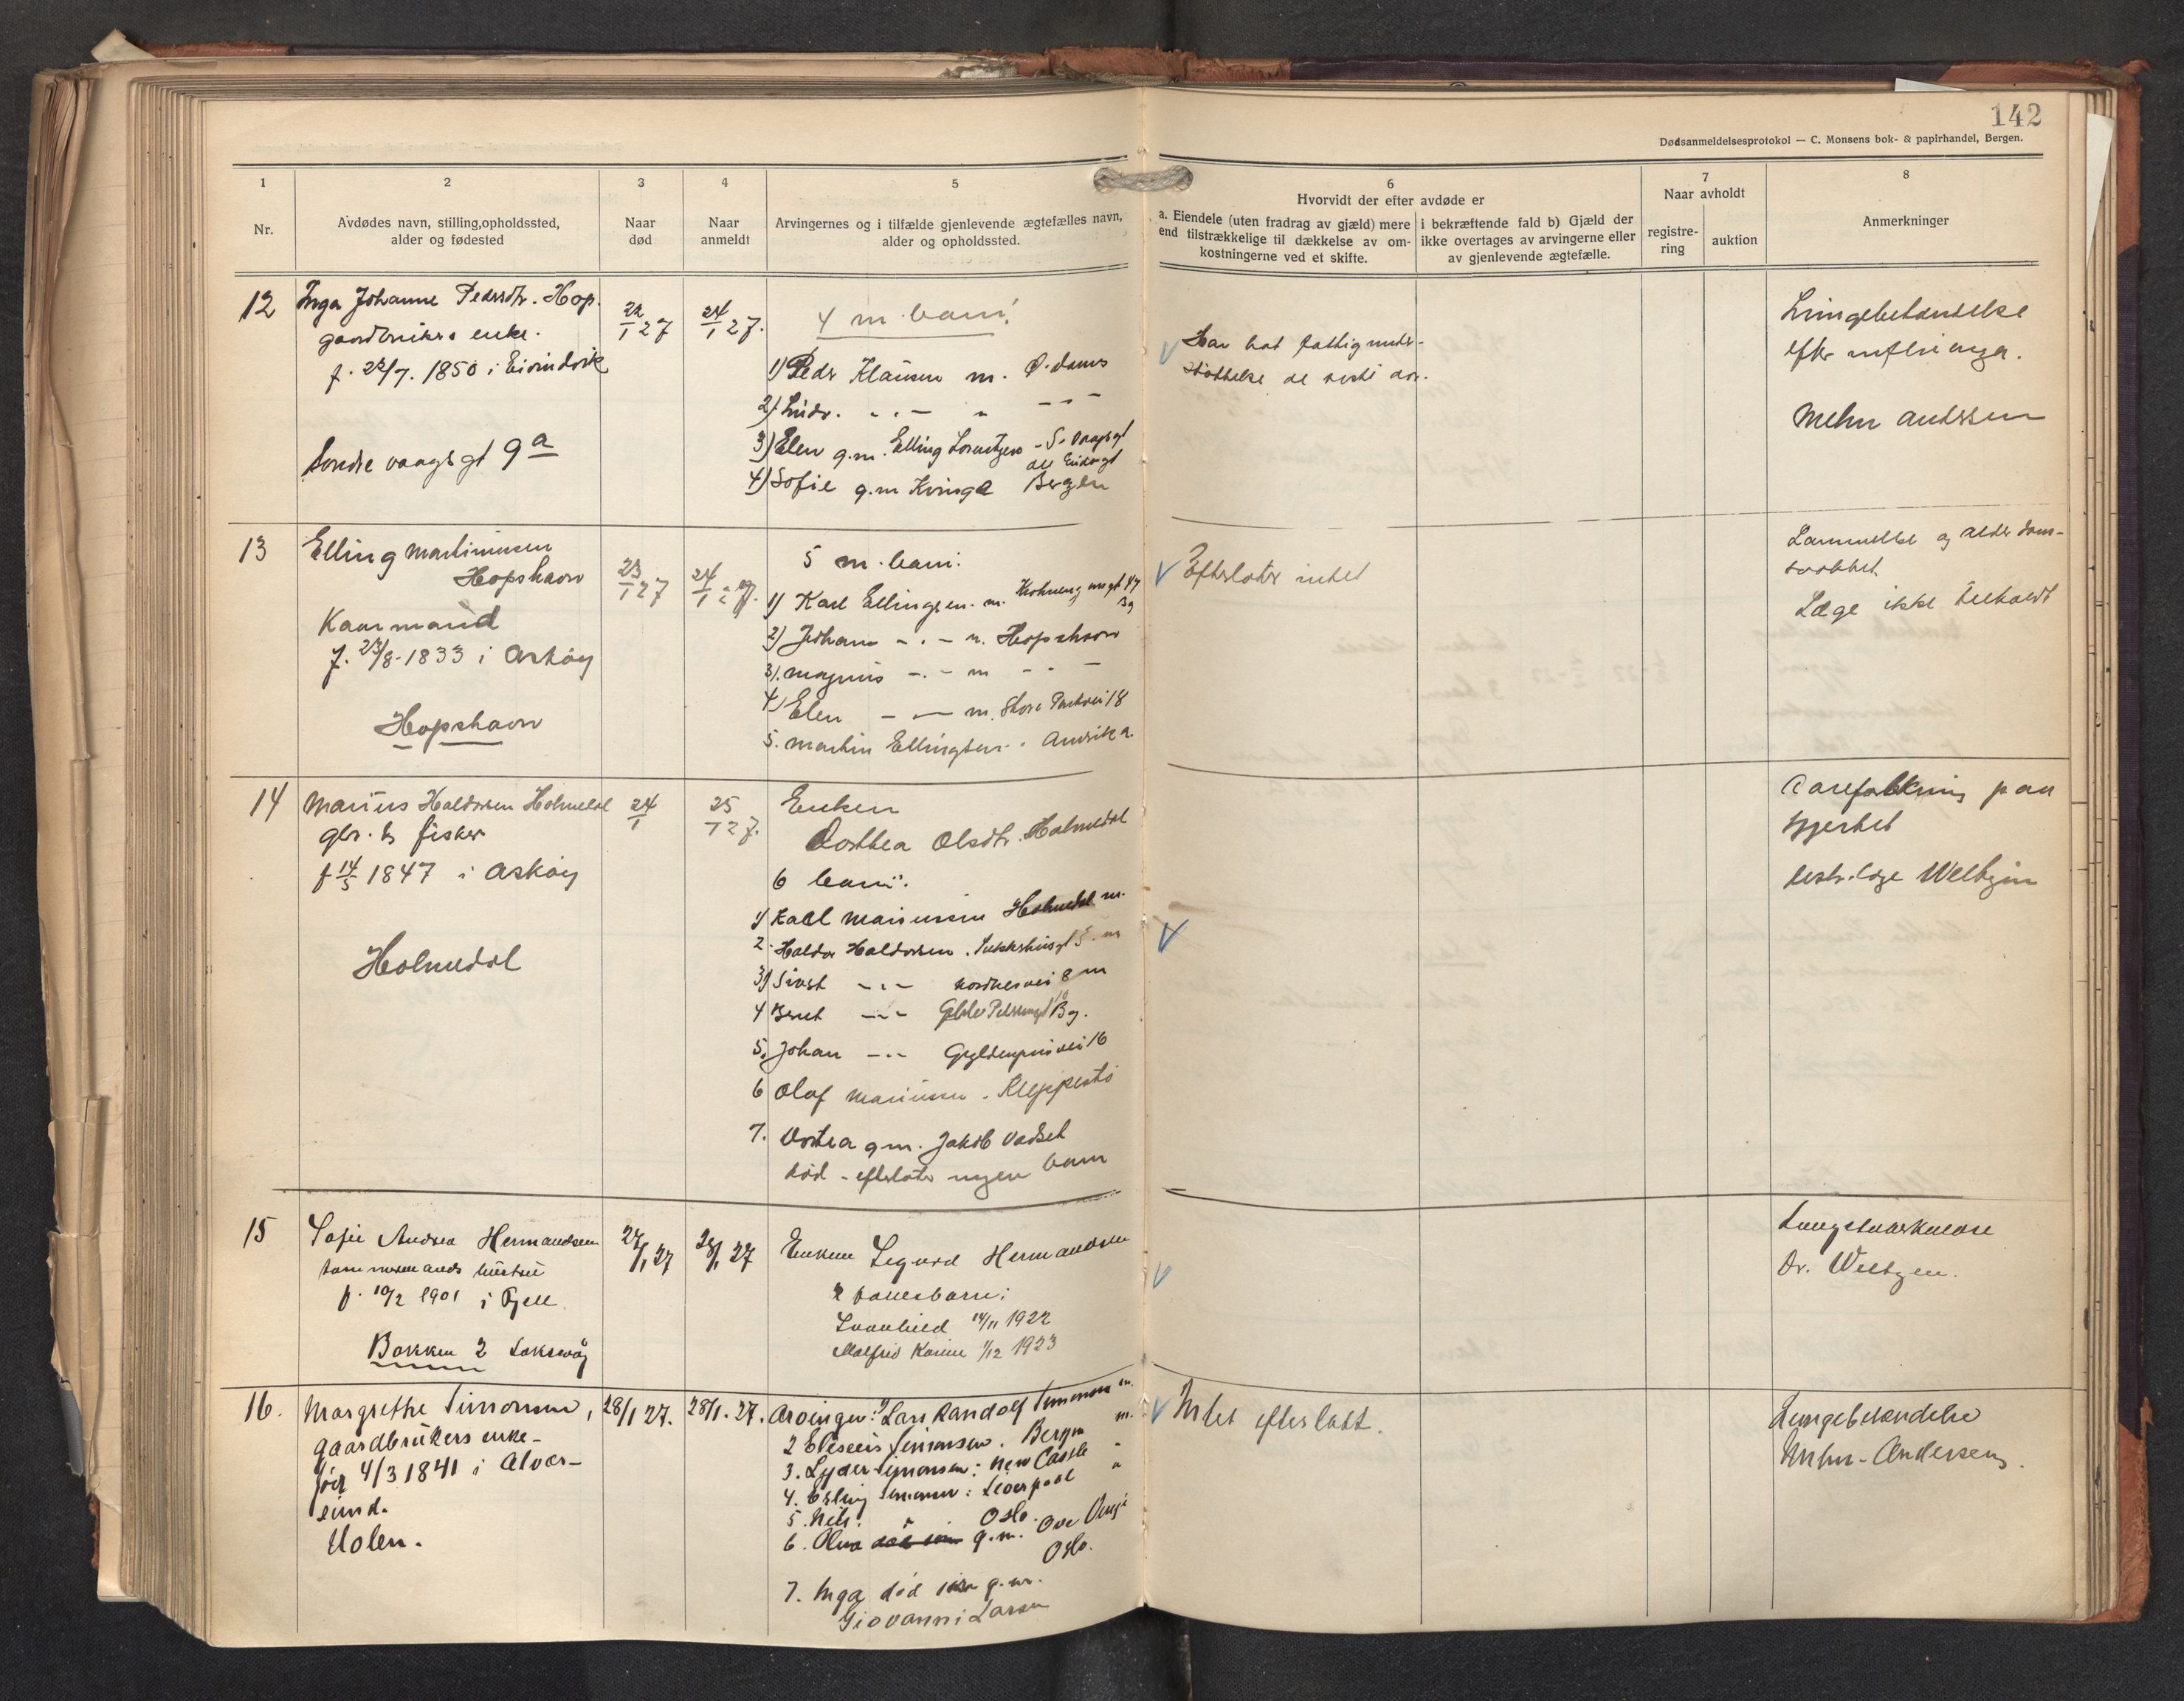 142
Dødsanmeldelsesprotokol — C. Monsens bok- & papirhandel, Bergen.
1
Nr.
2
Avdødes navn, stilling, opholdssted,
alder og fødested
3
Naar
død
4
Naar
anmeldt
5
Arvingernes og i tilfælde gjenlevende ægtefælles navn,
alder og opholdssted.
6
Hvorvidt der efter avdøde er
a. Eiendele (uten fradrag av gjæld) mere
end tilstrækkelige til dækkelse av om-
kostningerne ved et skifte.
i bekræftende fald b) Gjæld der
ikke overtages av arvingerne eller
av gjenlevende ægtefælle.
7
Naar avholdt
registre-
ring
auktion
8
Anmerkninger
12
Inga Johanne Pedersdtr. Hop.
gaardbrukers enke.
f. 22/7. 1850 i Eivindvik
Søndre vaagsgt 9a
22/1 27
24/1 27.
4 m. barn:
1) Peder Klausen m.
2) Ludv. - . - " - - -
3) Elen g.m. Elling Lorentzen - S. Vaagsgt
4) Sofie g.m. Kvinge Bergen
Har hat fattigunder-
støttelse de siste aar.
Lungebetændelse
efter influenza.
Mehn Andersen
13
Elling Martinussen
Hopshavn
Kaarmand
f. 23/8-1833 i Askøy
Hopshavn
23/1 27
24/1 27.
5 m. barn:
1) Karl Ellingsen. m. 47
Bg
2) Johan - . - m. Hopshavn
3). Magnus - . - m - - -
4) Elen - - m. Store Parkvei 18
5. Martin Ellingsen. Amerika.
Efterlater intet
Lammelse og alderdoms-
svakhet
Læge ikke tilkaldt
14
Marius Haldorsen Holmedal
gbr. & fisker
f 14/5 1847 i Askøy
Holmedal
24/1
25/1 27.
Enken
Dorthea Olsdtr. Holmedal
6 barn:
1) Karl Mariussen Holmedal m.
2. Haldor Haldorsen. Sukkerhusgt 5. m
3) Sivert - . - Nordnesvei 8 m
4 Bernt - - - Bg.
5. Johan - . - Gyldenprisvei 16
6 Olaf Mariussen - Kleppestø
7. Dortea g.m. Jakob Vadset
død - efterlater ingen barn
Aareforkalkning paa
hjertet
distr.læge Welhaven
15
Sofie Andrea Hermandsen
tømmermands hustru
f. 10/2 1901 i Fjell.
Bakken 2 Laksevåg
27/1 27
28/1 27
Enkem. Sigurd Hermandsen
2 fællesbarn:
Svanhild 14/11 1922
Malfrid Karine 1/12 1923
Lungetuberkulose
Dr. Welhaven.
16.
Margrethe Simonsen,
gaardbrukers enke -
født 4/3 1841 i Alver-
sund.
Holen.
28/1 27.
28/1. 27.
Arvinger: 1) Lars Randolf Simonsen m.
2 Eliseus Simonsen. Bergen m.
3. Lyder Simonsen: New Castle "
4. Erling Simonsen: Liverpool "
5. Nils. " Oslo.
6. Olive g.m. Ove
Oslo.
7. Inga død g.m.
Giovanni Larsen
Intet efterlatt.
Lungebetændelse
Mehn-Andersen.